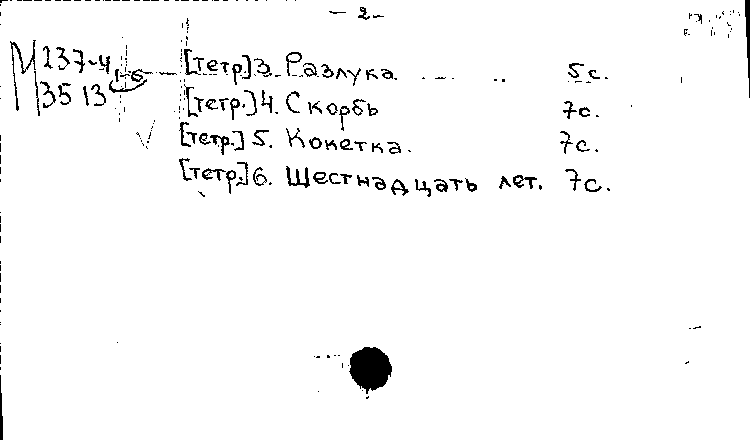 - 2 -
М 237-4
1-6
35 13
[тетр.] 3. Разлука 5 с.
[тетр.] 4. Скорбь 7с.
[тетр.] 5. Кокетка. 7с.
[тетр.] 6. Шестнадцать лет. 7с.